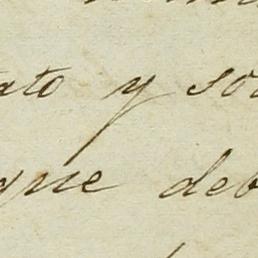 ato y so
que deb